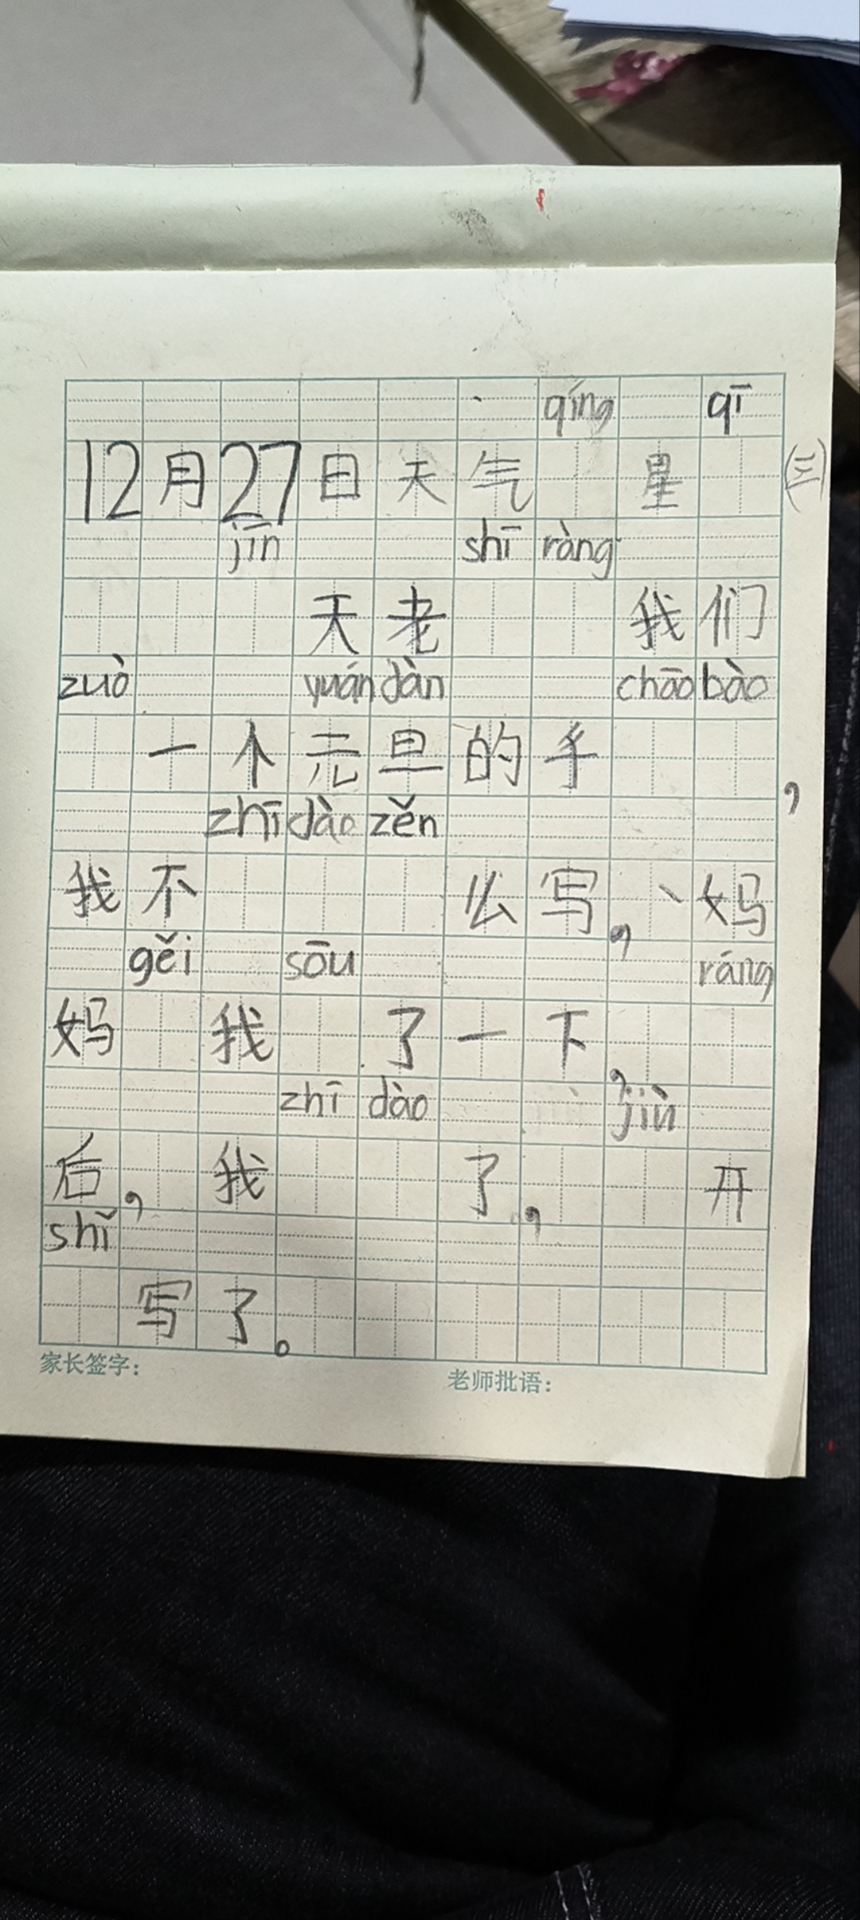 qíng qī
12月27日天气 星 (三)
jīn shī ràng
天老 我们
zuò yuán dàn chāo bào
一个元旦的手,
zhī dào zěn
我不 么写,妈
gěi sōu ráng
妈 我 了一下,
zhī dào jìn
后,我 了, 开
shǐ
写了。
家长签字: 老师批语: